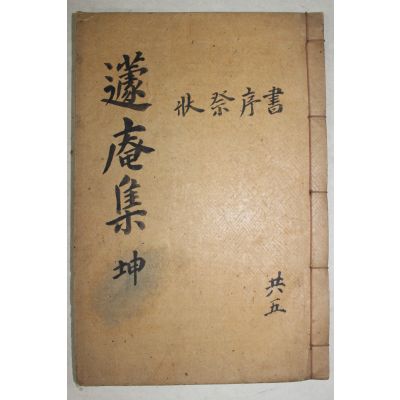 蘧庵集 坤
書序祭狀
共五